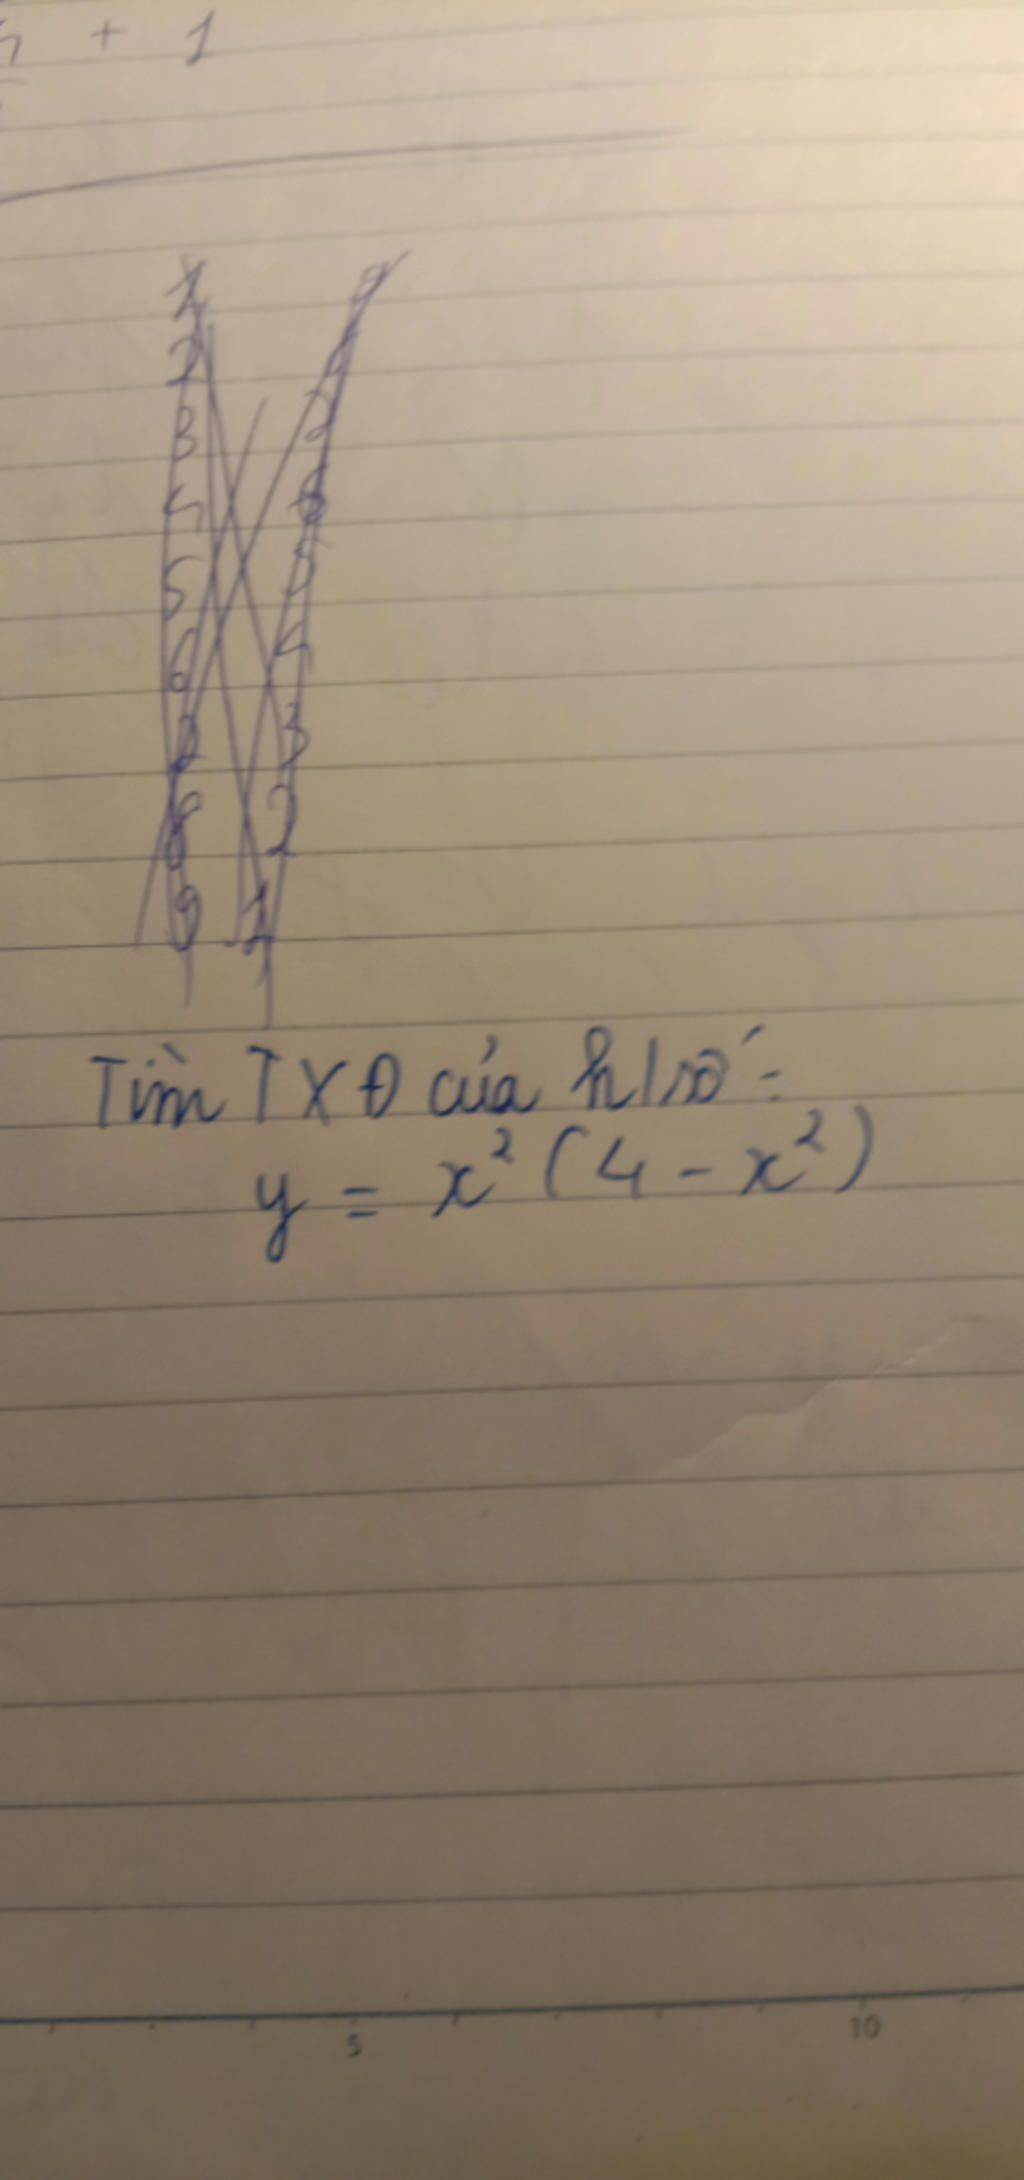 + 1
1 9
2 8
3 7
4 6
5 5
6 4
7 3
8 2
9 1
Tìm TXĐ của h/số:
y = x² (4 - x²)
5 10